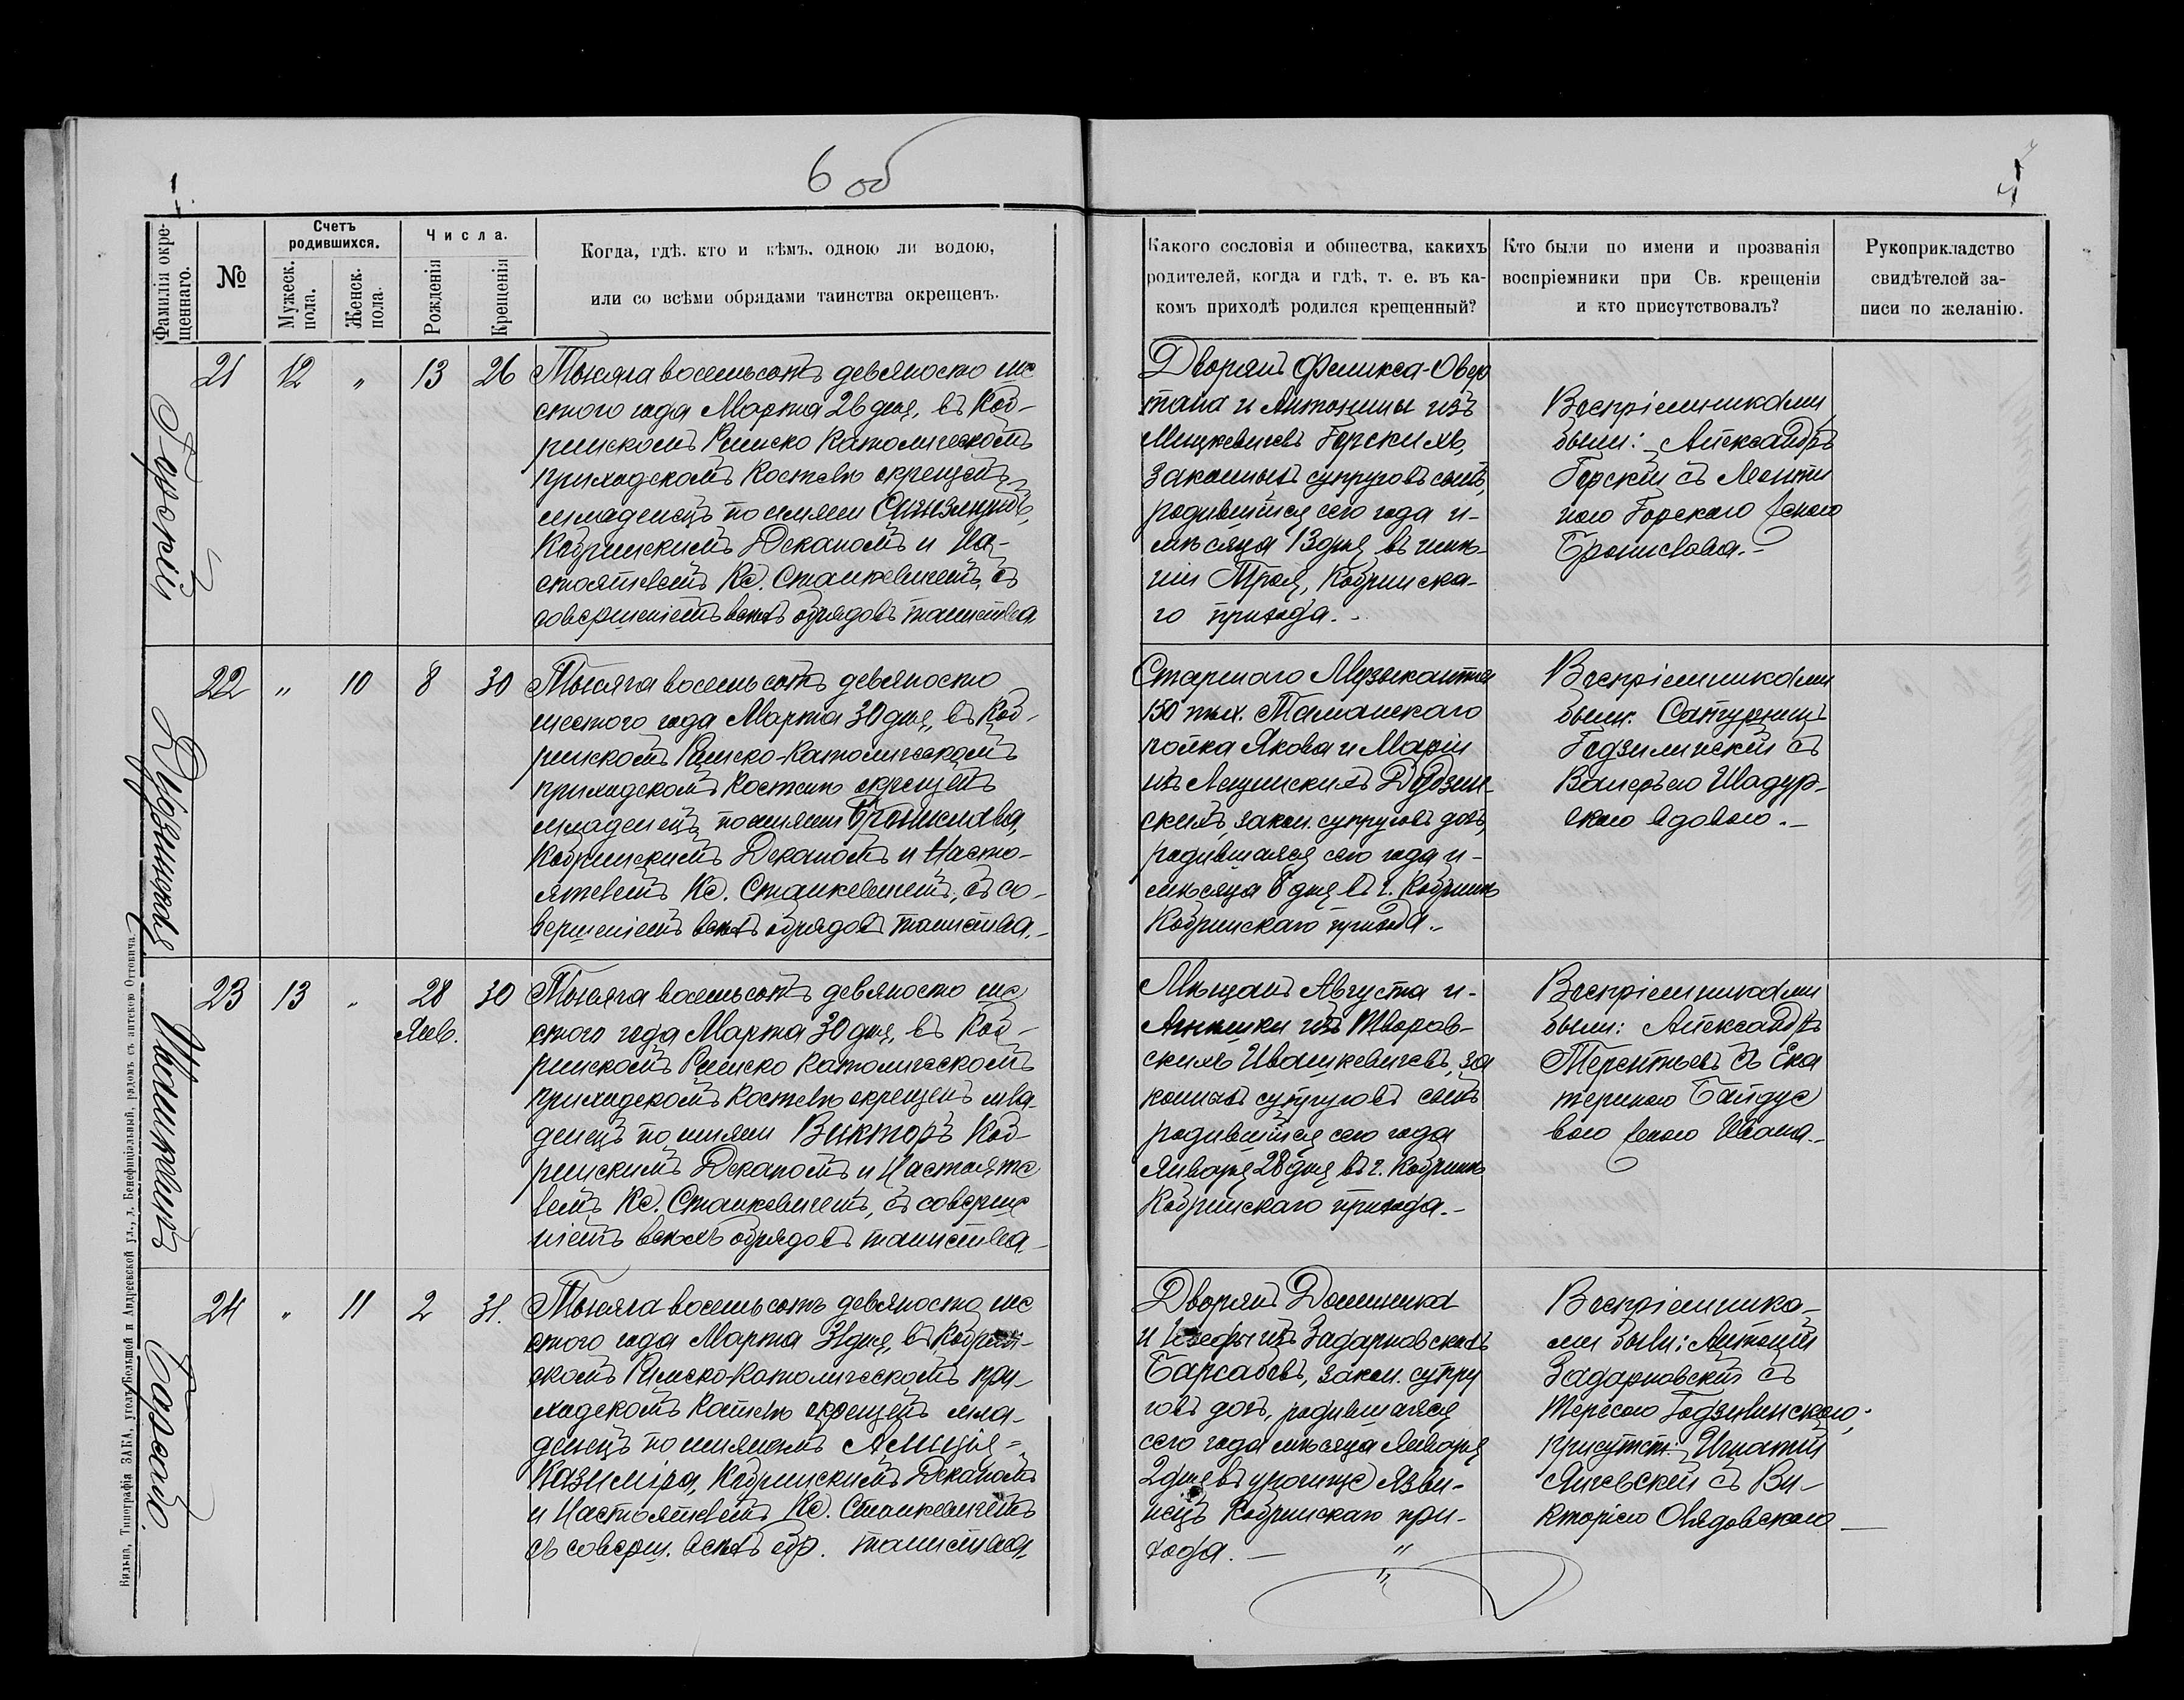 6 об
Фамилія окре-
щеннаго.
№
Счетъ
родившихся.
Мужеск.
пола.
Женск.
пола.
Числа.
Рожденія
Крещенія
Когда, гдѣ, кто и кѣмъ, одною ли водою,
или со всѣми обрядами таинства окрещенъ.
Какого сословія и общества, какихъ
родителей, когда и гдѣ, т. е. въ ка-
комъ приходѣ родился крещенный?
Кто были по имени и прозванія
воспріемники при Св. крещеніи
и кто присутствовалъ?
Рукоприкладство
свидѣтелей за-
писи по желанію.
Горскій
21 12 " 13 26
Тысяча восемьсотъ девяносто ше
стого года Марта 26 дня, въ Коб-
ринскомъ Римско Католическомъ
приходскомъ Костелѣ окрещенъ
младенецъ по имени Сигизмундъ,
Кобринскимъ Деканомъ и На-
стоятелемъ Кс. Станкевичемъ, съ
совершеніемъ всѣхъ обрядовъ таинства
Дворянъ Феликса-
и Антонины изъ
Мицкевичевъ Горскихъ,
законныхъ супруговъ сынъ,
родившійся сего года и-
мѣсяца 13 дня въ имѣ-
ніи Кобринска-
го прихода.-
Воспріемниками
были: Александръ
Горскій съ Леонти
ною Горскою женою
Бронислава.-
Дудзинская
22 " 10 8 30
Тысяча восемьсотъ девяносто
шестого года Марта 30 дня, въ Коб-
ринскомъ Римско-Католическомъ
приходскомъ Костелѣ окрещенъ
младенецъ по имени Бронислава,
Кобринскимъ Деканомъ и Насто-
ятелемъ Кс. Станкевичемъ, съ со-
вершеніемъ всѣхъ обрядовъ таинства.-
Старшого Музыканта
150 пѣх. Таманскаго
полка Якова и Маріи
изъ Лещинскихъ Дудзин-
скихъ, закон. супруговъ дочь,
родившаяся сего года и-
мѣсяца 8 дня въ г. Кобринѣ
Кобринскаго прихода.-
Воспріемниками
были: Сатурнинъ
Годзилинскій съ
Валеріею Шадур-
скою вдовою.-
Ивашкевичъ
23 13 " 28 30
Янв.
Тысяча восемьсотъ девяносто ше
стого года Марта 30 дня, въ Коб-
ринскомъ Римско Католическомъ
приходскомъ Костелѣ окрещенъ мла-
денецъ по имени Викторъ Коб-
ринскимъ Деканомъ и Настояте
лемъ Кс. Станкевичемъ, съ соверше
ніемъ всѣхъ обрядовъ таинства-
Мѣщанъ Августа и-
Агнешки изъ Творов-
скихъ Ивашкевичевъ, за
конныхъ супруговъ сынъ
родившійся сего года
Января 28 дня въ г. Кобринѣ
Кобринскаго прихода.-
Воспріемниками
были: Александръ
Терентьевъ съ Ека
териною Байдус
вою женою Ивана.-
Барсабо
24 " 11 2 31.
Тысяча восемьсотъ девяносто ше
стого года Марта 31 дня, въ Кобрин-
скомъ Римско-Католическомъ при-
ходскомъ Костелѣ окрещенъ мла-
денецъ по именамъ Алиція-
Казиміра, Кобринскимъ Деканомъ
и Настоятелемъ Кс. Станкевичемъ
съ соверш. всѣхъ обр. таинства.
Дворянъ Доминика
и Іозефы изъ Задарновскихъ
Барсабовъ, закон. супру
говъ дочь, родившаяся
сего года мѣсяца Января
2 дня въ урочищѣ
Кобринскаго при-
хода.-
Воспріемника-
ми были: Антоній
Задарновскій съ
Тересою Годзилинскою;
присутст: Игнатій
съ Ви-
кторіею
Вильна, Типографія ЗАКА, уголъ Большой и Андреевской ул., д. Бенефиціальный, рядомъ съ аптекою Оттовича.